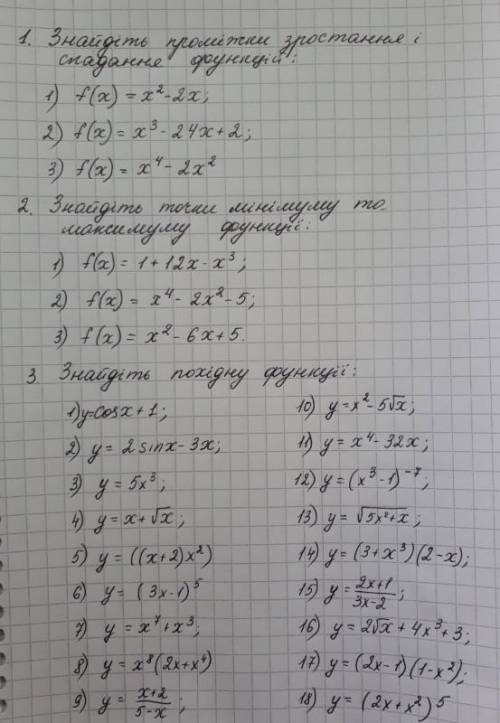 1. Знайдіть проміжки зростання і
спадання функцій:
1) f(x) = x² - 2x;
2) f(x) = x³ - 24x + 2;
3) f(x) = x⁴ - 2x²
2. Знайдіть точки мінімуму та
максимуму функції:
1) f(x) = 1 + 12x - x³;
2) f(x) = x⁴ - 2x² - 5;
3) f(x) = x² - 6x + 5.
3. Знайдіть похідну функції:
1) y=cosx + 1;
2) y = 2 sinx - 3x;
3) y = 5x³;
4) y = x + √x;
5) y = ((x+2)x²)
6) y = (3x-1)⁵
7) y = x⁷ + x³;
8) y = x⁸(2x + x⁴)
9) y = (x+2)/(5-x);
10) y = x² - 5√x;
11) y = x⁴ - 32x;
12) y = (x³ - 1)⁻⁷;
13) y = √(5x² + x);
14) y = (3 + x³)(2 - x);
15) y = (2x+1)/(3x-2);
16) y = 2√x + 4x³ + 3;
17) y = (2x - 1)(1 - x²);
18) y = (2x + x²)⁵